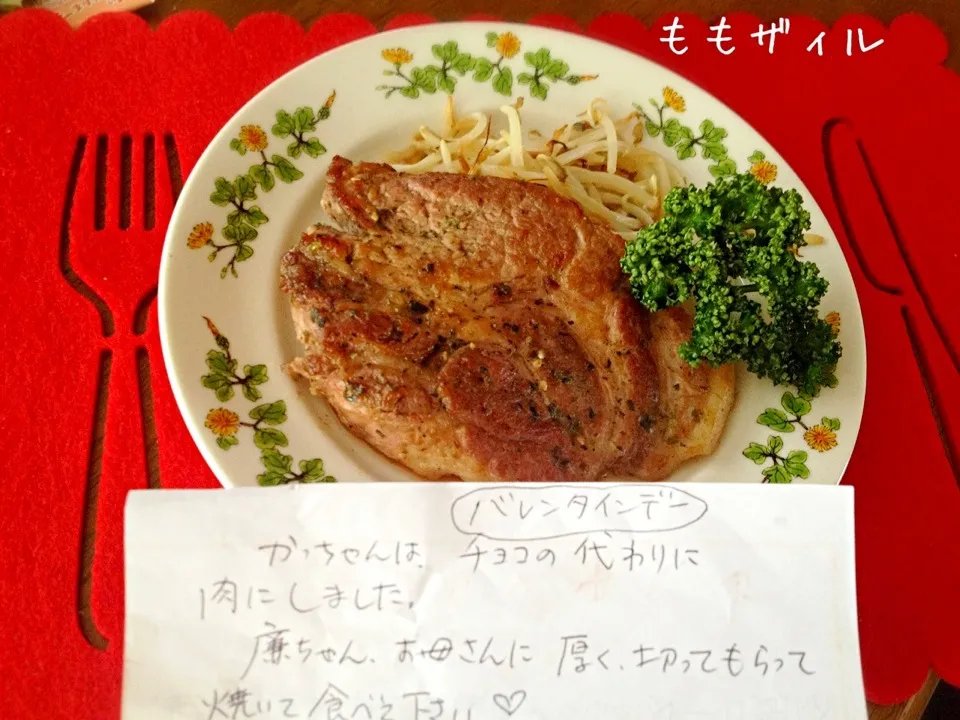 ももザィル
バレンタインデー
かっちゃんは、チョコの代わりに
肉にしました。
廉ちゃん、お母さんに厚く、切ってもらって
焼いて食べて下さい♡